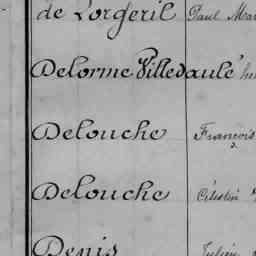 de Lorgeril Paul Mar
Delorme Villedaulé
Delouche François
Delouche Célestin
Denis Julien